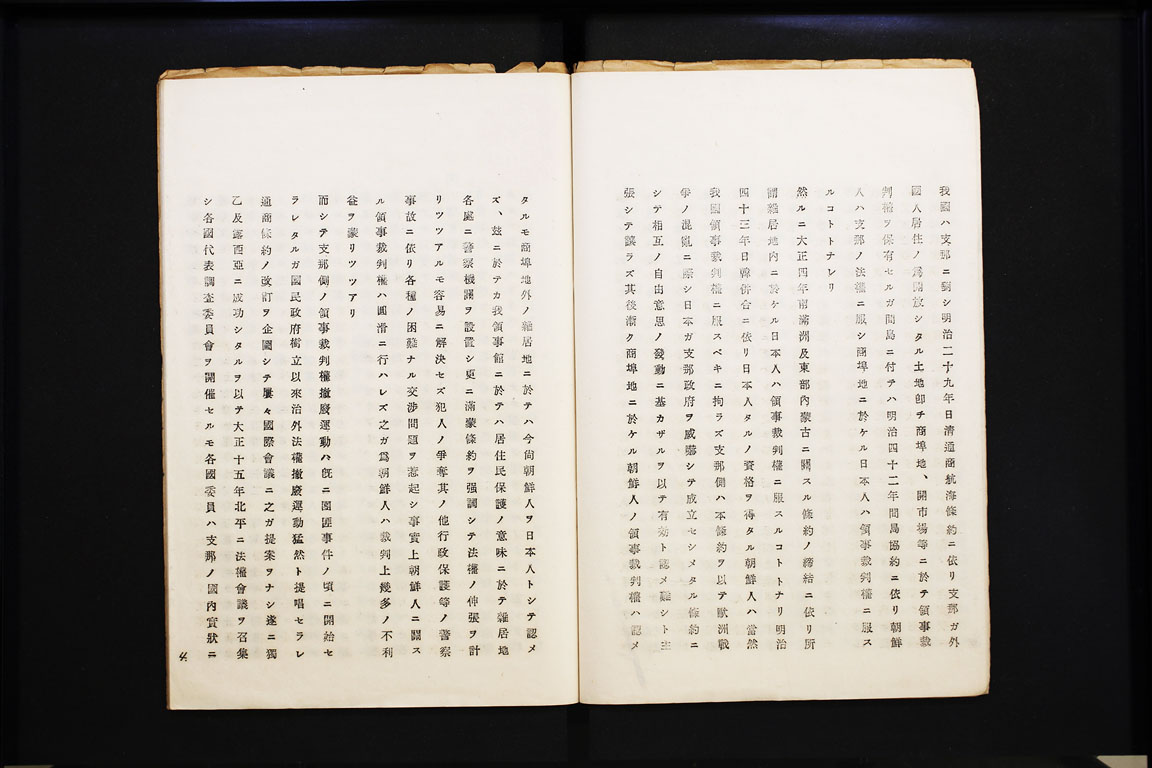 我國ハ支那ニ對シ明治二十九年日淸通商航海條約ニ依リ支那ガ外
國人居住ノ爲開放シタル土地卽チ商埠地、開市場等ニ於テ領事裁
判權ヲ保有セルガ間島ニ付テハ明治四十二年間島協約ニ依リ朝鮮
人ハ支那ノ法權ニ服シ商埠地ニ於ケル日本人ハ領事裁判權ニ服ス
ルコトトナレリ
然ルニ大正四年南滿洲及東部內蒙古ニ關スル條約ノ締結ニ依リ所
謂雜居地內ニ於ケル日本人ハ領事裁判權ニ服スルコトトナリ明治
四十三年日韓併合ニ依リ日本人タルノ資格ヲ得タル朝鮮人ハ當然
我國領事裁判權ニ服スベキニ拘ラズ支那側ハ本條約ヲ以テ歐洲戰
爭ノ混亂ニ際シ日本ガ支那政府ヲ威嚇シテ成立セシメタル條約ニ
シテ相互ノ自由意思ノ發動ニ基カザルヲ以テ有効ト認メ難シト主
張シテ讓ラズ其後漸ク商埠地ニ於ケル朝鮮人ノ領事裁判權ハ認メ
タルモ商埠地外ノ雜居地ニ於テハ今尙朝鮮人ヲ日本人トシテ認メ
ズ、玆ニ於テカ我領事館ニ於テハ居住民保護ノ意味ニ於テ雜居地
各處ニ警察機關ヲ設置シ更ニ滿蒙條約ヲ强調シテ法權ノ伸張ヲ計
リツツアルモ容易ニ解決セズ犯人ノ爭奪其ノ他行政保護等ノ警察
事故ニ依リ各種ノ困難ナル交涉問題ヲ惹起シ事實上朝鮮人ニ關ス
ル領事裁判權ハ圓滑ニ行ハレズ之ガ爲朝鮮人ハ裁判上幾多ノ不利
益ヲ蒙リツツアリ
而シテ支那側ノ領事裁判權撤廢運動ハ旣ニ團匪事件ノ頃ニ開始セ
ラレタルガ國民政府樹立以來治外法權撤廢運動猛然ト提唱セラレ
通商條約ノ改訂ヲ企圖シテ屢々國際會議ニ之ガ提案ヲナシ遂ニ獨
乙及露西亞ニ成功シタルヲ以テ大正十五年北平ニ法權會議ヲ召集
シ各國代表調査委員會ヲ開催セルモ各國委員ハ支那ノ國內實狀ニ